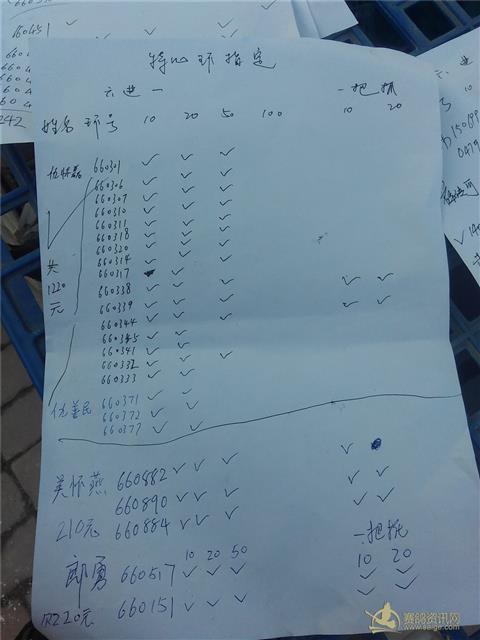 特比环指定
六进一 一把抓
姓名 环号 10 20 50 100 10 20
660301 ✓ ✓ ✓
660306 ✓ ✓ ✓
660307 ✓ ✓ ✓
660310 ✓ ✓ ✓
660311 ✓ ✓ ✓
660318 ✓ ✓ ✓
660320 ✓ ✓ ✓
660314 ✓ ✓ ✓
共 660317 ✓
1220 660338 ✓ ✓ ✓ ✓ ✓
元 660339 ✓ ✓ ✓ ✓ ✓
660344 ✓ ✓ ✓
660345 ✓ ✓
660341 ✓ ✓ ✓
660332 ✓ ✓
660333 ✓ ✓
660371 ✓ ✓
660372 ✓ ✓
660377 ✓ ✓
吴怀燕 660882 ✓ ✓ ✓ ✓
660890 ✓ ✓ ✓ ✓ ✓
210元 660884 ✓ ✓ ✓ ✓ ✓
10 20 50 一把抓
10 20
郎勇 660517 ✓ ✓ ✓ ✓ ✓
220元 660151 ✓ ✓ ✓ ✓ ✓
160451
242
赛鸽资讯网
www.saige.com